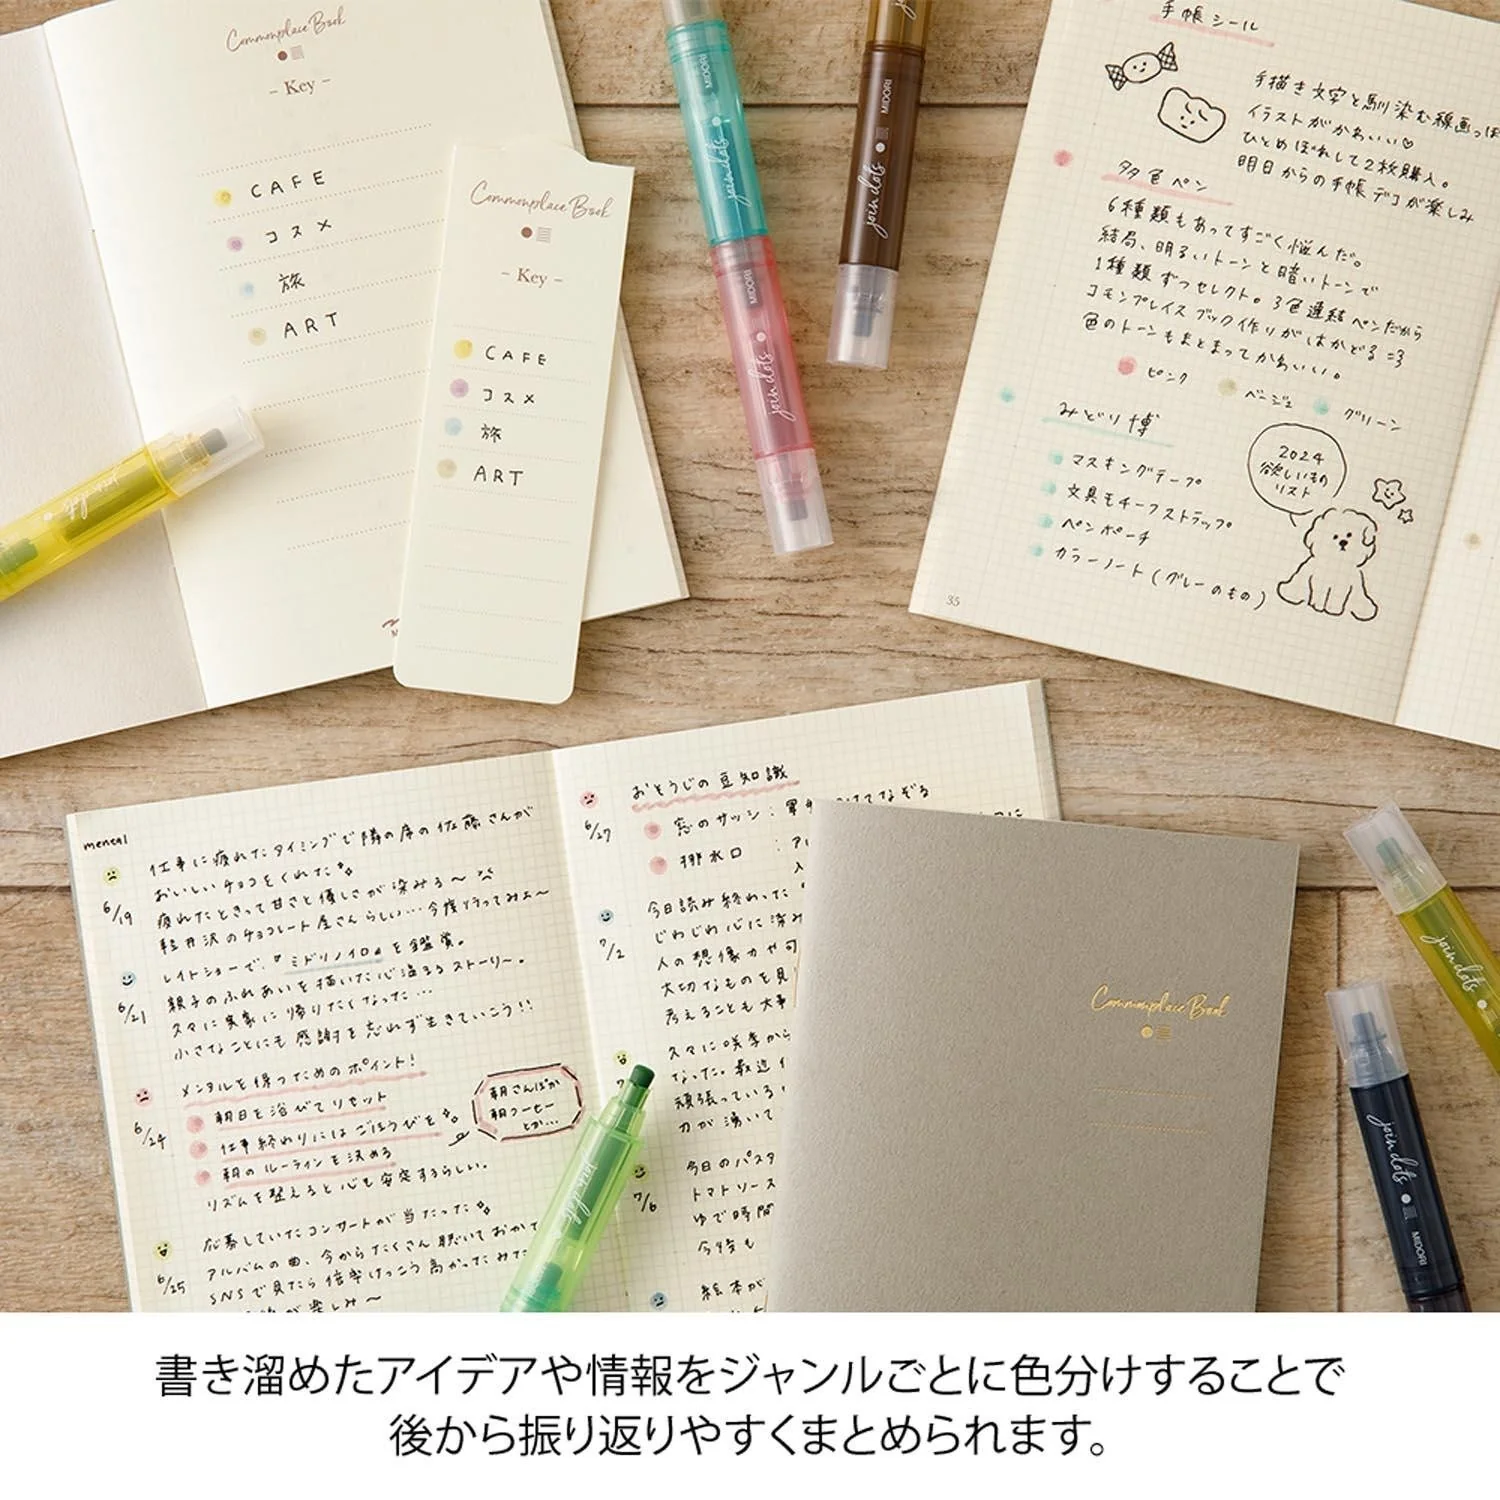 Commonplace Book
- Key -
CAFE
コスメ
旅
ART
Commonplace Book
- Key -
CAFE
コスメ
旅
ART
MIDORI
join dots
MIDORI
join dots
MIDORI
join dots
join dots
手帳シール
手描き文字と馴染む線画っぽ
イラストがかわいい♡
ひとめぼれして2枚購入。
明日からの手帳デコが楽しみ
多色ペン
6種類もあってすごく悩んだ。
結局、明るいトーンと暗いトーンで
1種類ずつセレクト。3色連結ペンだから
コモンプレイスブック作りがはかどる=3
色のトーンもまとまってかわいい。
ピンク
ベージュ
グリーン
みどり博
マスキングテープ
文具モチーフストラップ
ペンポーチ
カラーノート(グレーのもの)
2024
欲しいもの
リスト
35
mental
6/19
仕事に疲れたタイミングで隣の席の佐藤さんが
おいしいチョコをくれた
疲れたときって甘さと優しさが染みる〜
軽井沢のチョコレート屋さんらしい…今度行ってみよ〜
6/21
レイトショーで、『ミドリノイロ』を鑑賞。
親子のふれあいを描いた心温まるストーリー。
久々に実家に帰りたくなった…
小さなことにも感謝を忘れず生きていこう!!
6/24
メンタルを保つためのポイント!
朝日を浴びてリセット
仕事終わりにはごほうびを
朝のルーティンを決める
リズムを整えると心も安定するらしい。
朝さんぽか
朝コーヒー
とか…
6/25
応募していたコンサートが当たった
アルバムの曲、今からたくさん聴いておかな
SNSで見たら倍率けっこう高かったみた
が楽しみ〜
6/27
おそうじの豆知識
窓のサッシ:軍手
つけてなぞる
排水口:
7/2
今日読み終わった『
じわじわ心に染み
人の想像力や可
大切なものを見
考えることも大事
久々に咲季から
なった。最近
頑張っている
力が湧いて
7/6
今日のパスタ
トマトソース
ゆで時間
今度も
絵本が
join dots
Commonplace Book
join dots
join dots
MIDORI
書き溜めたアイデアや情報をジャンルごとに色分けすることで
後から振り返りやすくまとめられます。